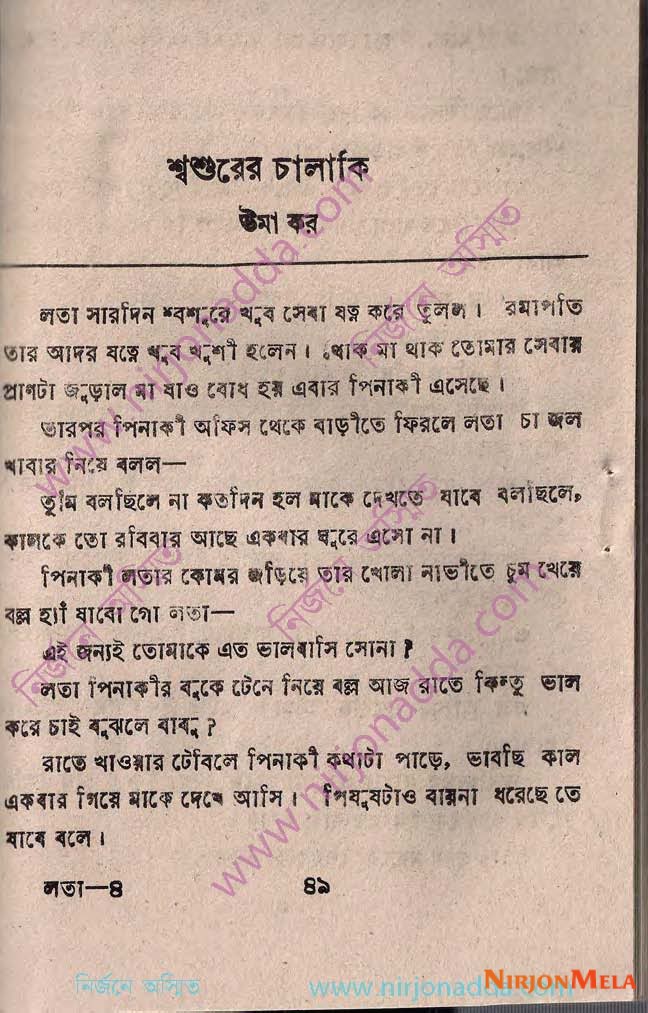 শ্বশুরের চালাকি
উমা কর
লতা সারদিন শ্বশুরে খুব সেবা যত্ন করে তুলল। রমাপতি
তার আদর যত্নে খুব খুশী হলেন। থাক মা থাক তোমার সেবায়
প্রাণটা জুড়াল মা যাও বোধ হয় এবার পিনাকী এসেছে।
তারপর পিনাকী অফিস থেকে বাড়ীতে ফিরলে লতা চা জল
খাবার নিয়ে বলল—
তুমি বলছিলে না কতদিন হল মাকে দেখতে যাবে বলছিলে,
কালকে তো রবিবার আছে একবার ঘুরে এসো না।
পিনাকী লতার কোমর জড়িয়ে তার খোলা নাভীতে চুম খেয়ে
বল্ল হ্যাঁ যাবো গো লতা—
এই জন্যই তোমাকে এত ভালবাসি সোনা?
লতা পিনাকীর বুকে টেনে নিয়ে বল্ল আজ রাতে কিন্তু ভাল
করে চাই বুঝলে বাবু?
রাতে খাওয়ার টেবিলে পিনাকী কথাটা পাড়ে, ভাবছি কাল
একবার গিয়ে মাকে দেখে আসি। পিষুষটাও বায়না ধরেছে তে
যাবে বলে।
লতা—৪ ৪৯
নির্জনে অস্মিত www.nirjonadda.com NIRJONMELA
www.nirjonadda.com
নির্জনে অস্মিত
নির্জনে অস্মিত
নির্জনে অস্মিত
www.nirjonadda.com